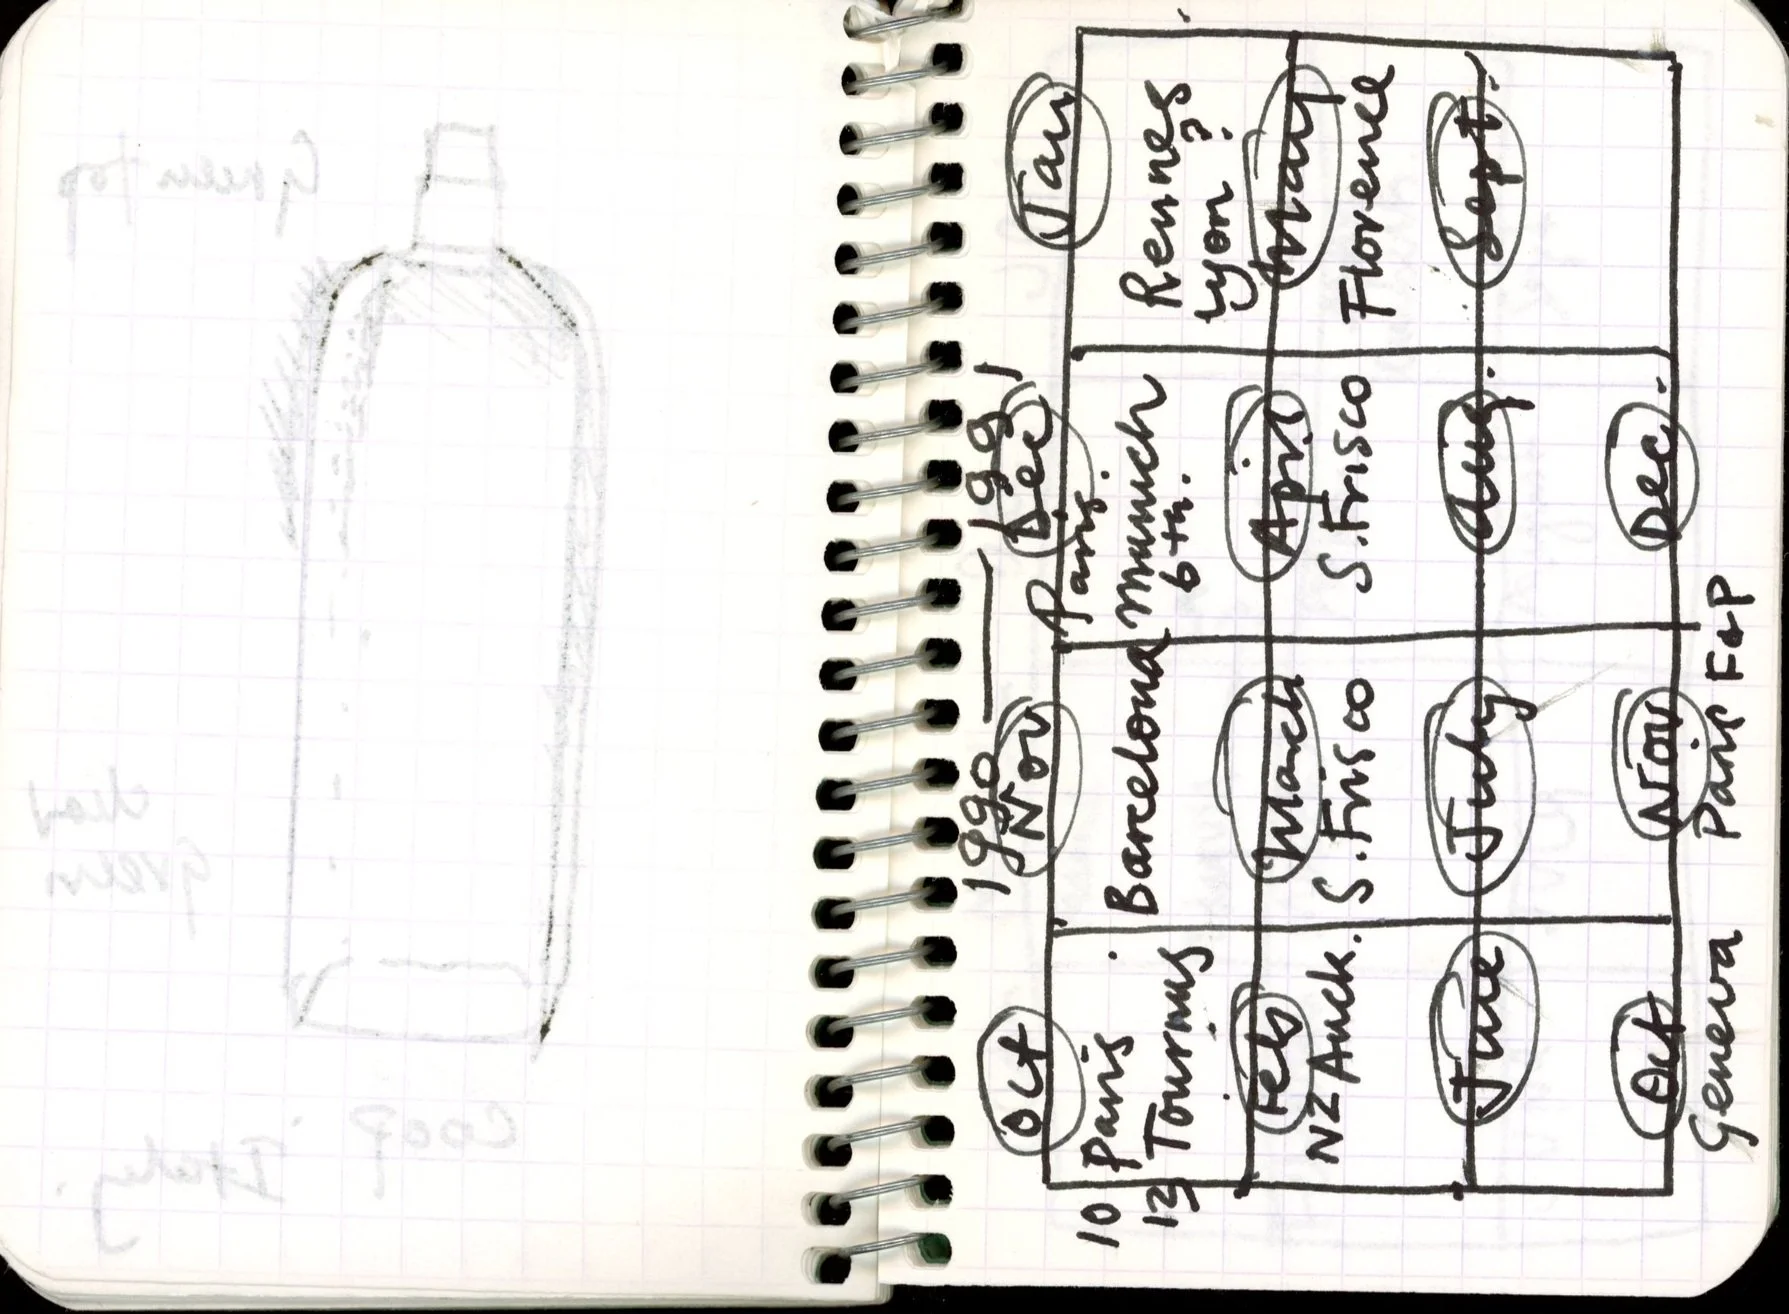 Green Top
Green
COOP
Italy.
1990 — 1991
Oct Nov Dec Jan
Paris.
10 Paris Barcelona Munich Rennes
13 Tournus 6th. Lyon?
Feb March April May
NZ Auck. S. Frisco S. Frisco Florence
June July Aug. Sept.
Oct Nov Dec.
Geneva Paris F&P